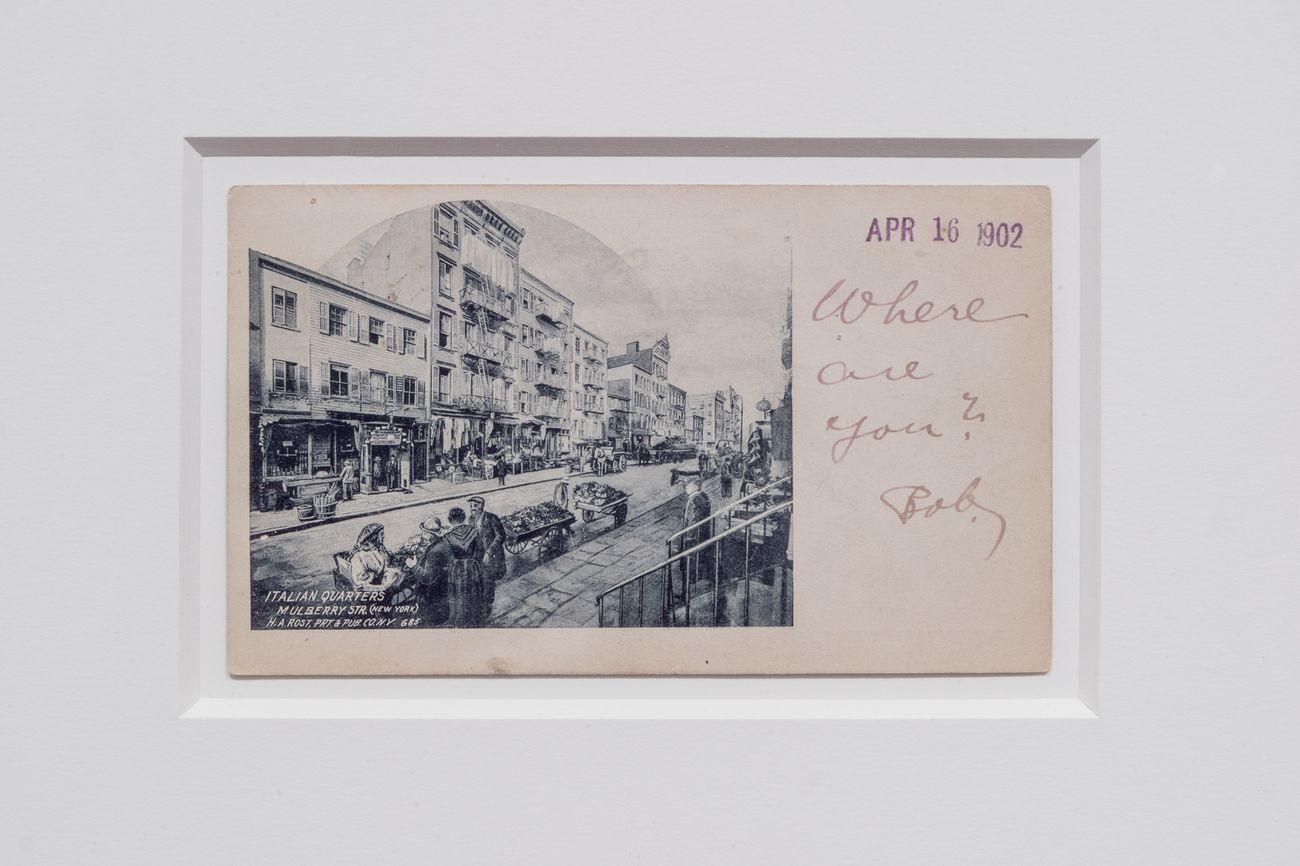 APR 16 1902
Where
are
you?
Bob.
ITALIAN QUARTERS
MULBERRY STR. (NEW YORK)
H.A. ROST, PRT. & PUB. CO. N.Y. 685